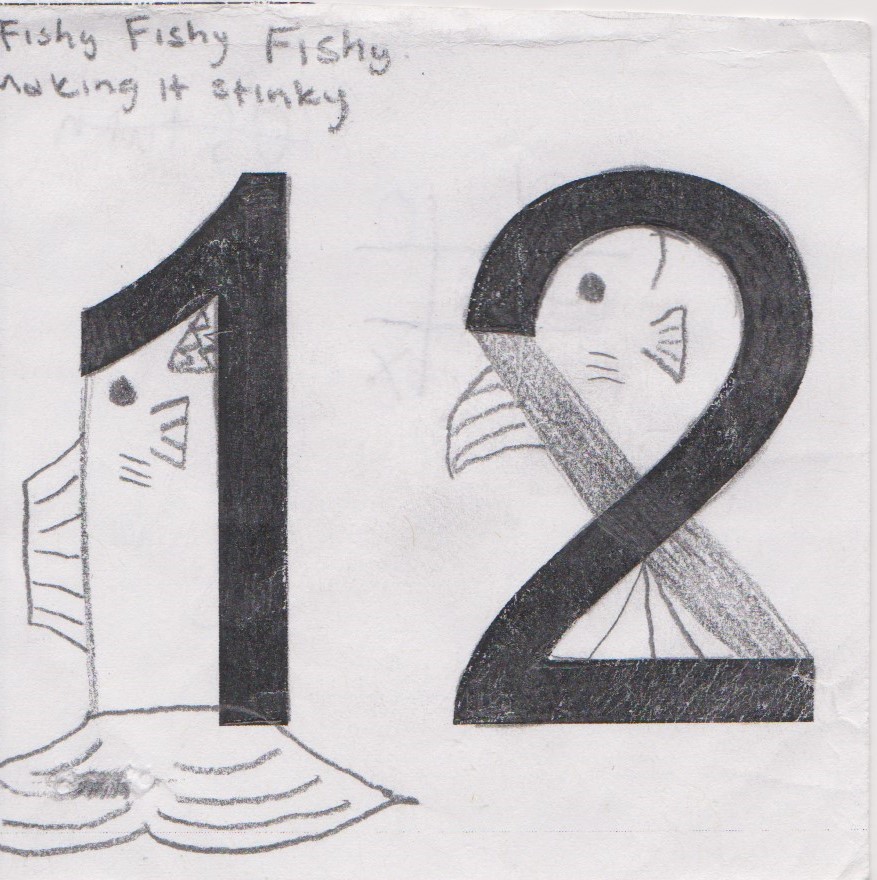 Fishy Fishy Fishy.
Making it stinky
12